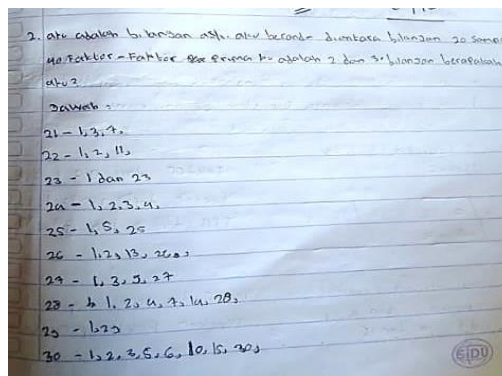 2. aku adalah bilangan asli. aku berada diantara bilangan 20 sampai
40 Faktor-Faktor prima ku adalah 2 dan 3. bilangan berapakah
aku?
Jawab:
21 - 1, 3, 7,
22 - 1, 2, 11,
23 - 1 dan 23
24 - 1, 2, 3, 4,
25 - 1, 5, 25
26 - 1, 2, 13, 26,
27 - 1, 3, 9, 27
28 - 1, 2, 4, 7, 14, 28,
29 - 1, 29
30 - 1, 2, 3, 5, 6, 10, 15, 30,
SIDU